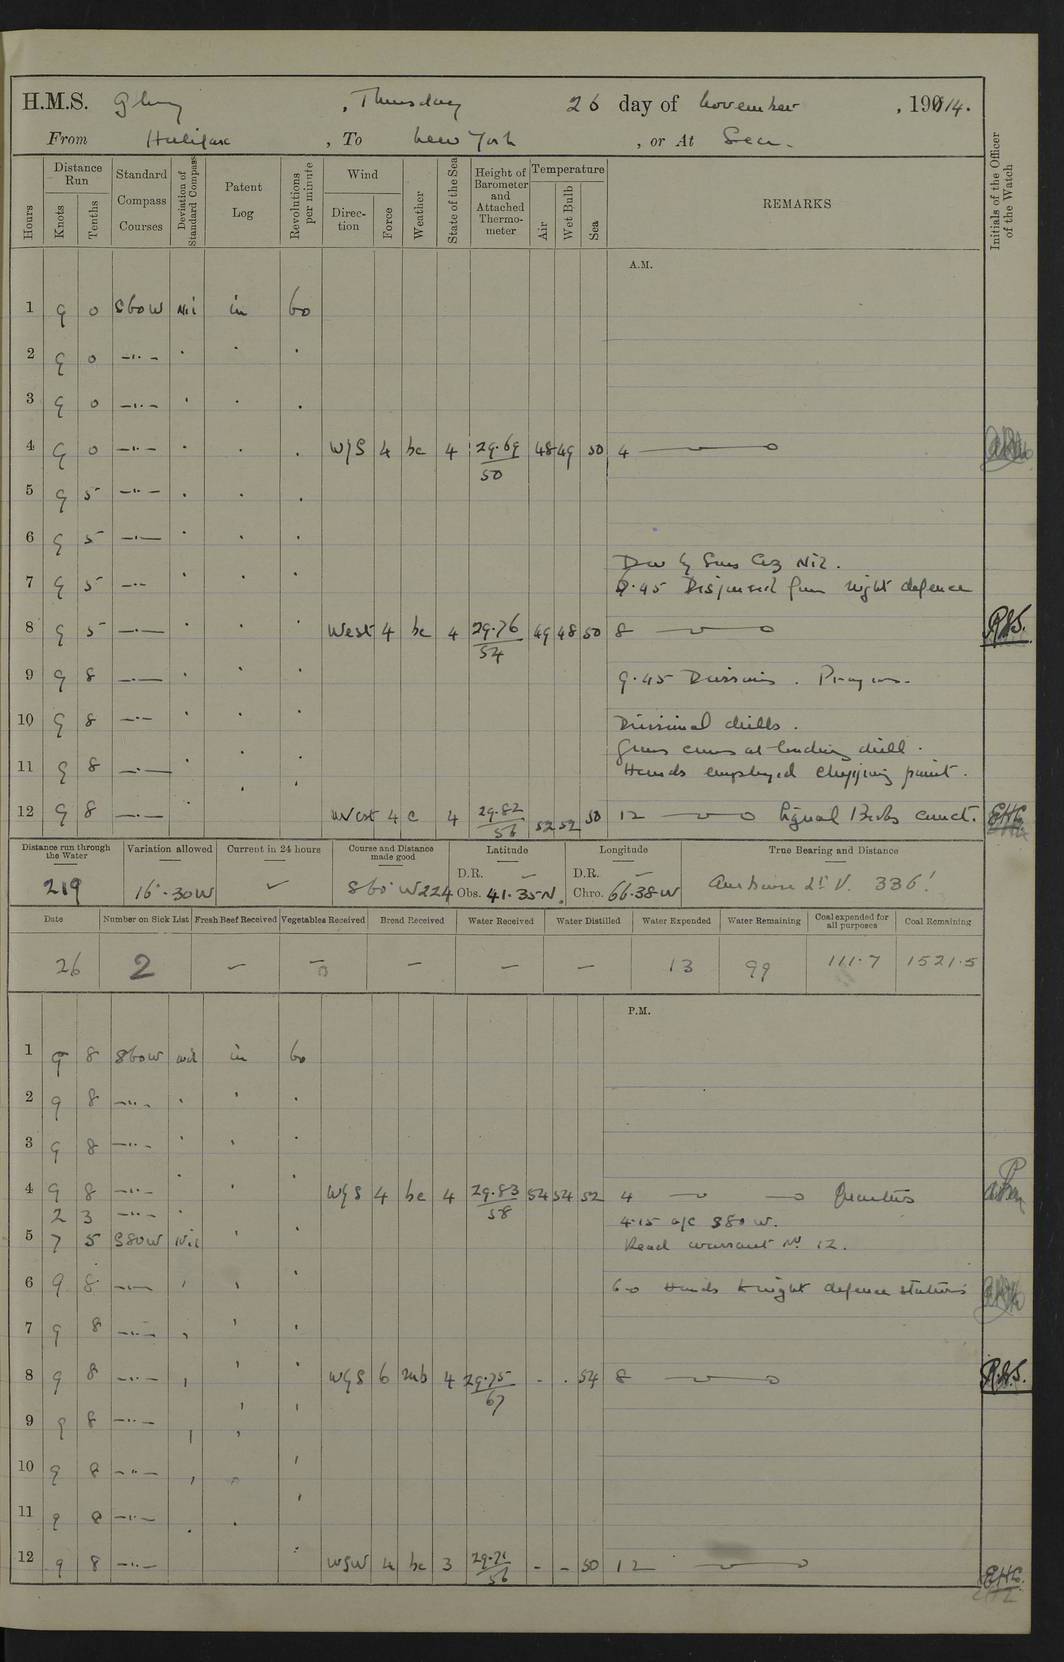 H.M.S. Glory , Thursday 26 day of November , 1914.
From Halifax , To New York , or At Sea.
Hours Distance Run Knots Tenths Standard Compass Courses Deviation of Standard Compass Patent Log Revolutions per minute Wind Direction Force Weather State of the Sea Height of Barometer and Attached Thermometer Temperature Air Wet Bulb Sea REMARKS Initials of the Officer of the Watch
A.M.
1 9 0 S60W Nil in 60
2 9 0 —··—
3 9 0 —··—
4 9 0 —··— WyS 4 bc 4 29.69 / 50 48 49 50 4
5 9 5 —··—
6 9 5 —·—
Dev by Suns Az Nil.
7 9 5 —··— 6.45 Dispersed from night defence
8 9 5 —·— West 4 bc 4 29.76 / 54 49 48 50 8
9 9 8 —·— 9.45 Divisions. Prayers.
10 9 8 —·— Divisional drills.
Guns crews at loading drill.
11 9 8 —·— Hands employed chipping paint.
12 9 8 —·— West 4 c 4 29.82 / 56 52 52 50 12 Signal Books correct. EHG
Distance run through the Water Variation allowed Current in 24 hours Course and Distance made good Latitude Longitude True Bearing and Distance
219 16°.30W S60°W 224 D.R. — Obs. 41.35N. D.R. — Chro. 66.38W 336'
Date Number on Sick List Fresh Beef Received Vegetables Received Bread Received Water Received Water Distilled Water Expended Water Remaining Coal expended for all purposes Coal Remaining
26 2 — — — — — 13 99 111.7 1521.5
P.M.
1 9 8 S60W Nil in 60
2 9 8 —··—
3 9 8 —··—
4 9 8 —··— WyS 4 bc 4 29.83 / 58 54 54 52 4 Quarters
2 3 —··— 4.15 a/c S80W.
5 7 5 S80W Nil Read warrant No. 12.
6 9 8 —·— 6.0 Hands to night defence stations
7 9 8 —··—
8 9 8 —··— WyS 6 4 29.75 / 67 - - 54 8
9 9 8 —··—
10 9 8 —··—
11 9 8 —··—
12 9 8 —··— WSW 4 bc 3 29.71 / 56 - - 50 12 EHG.